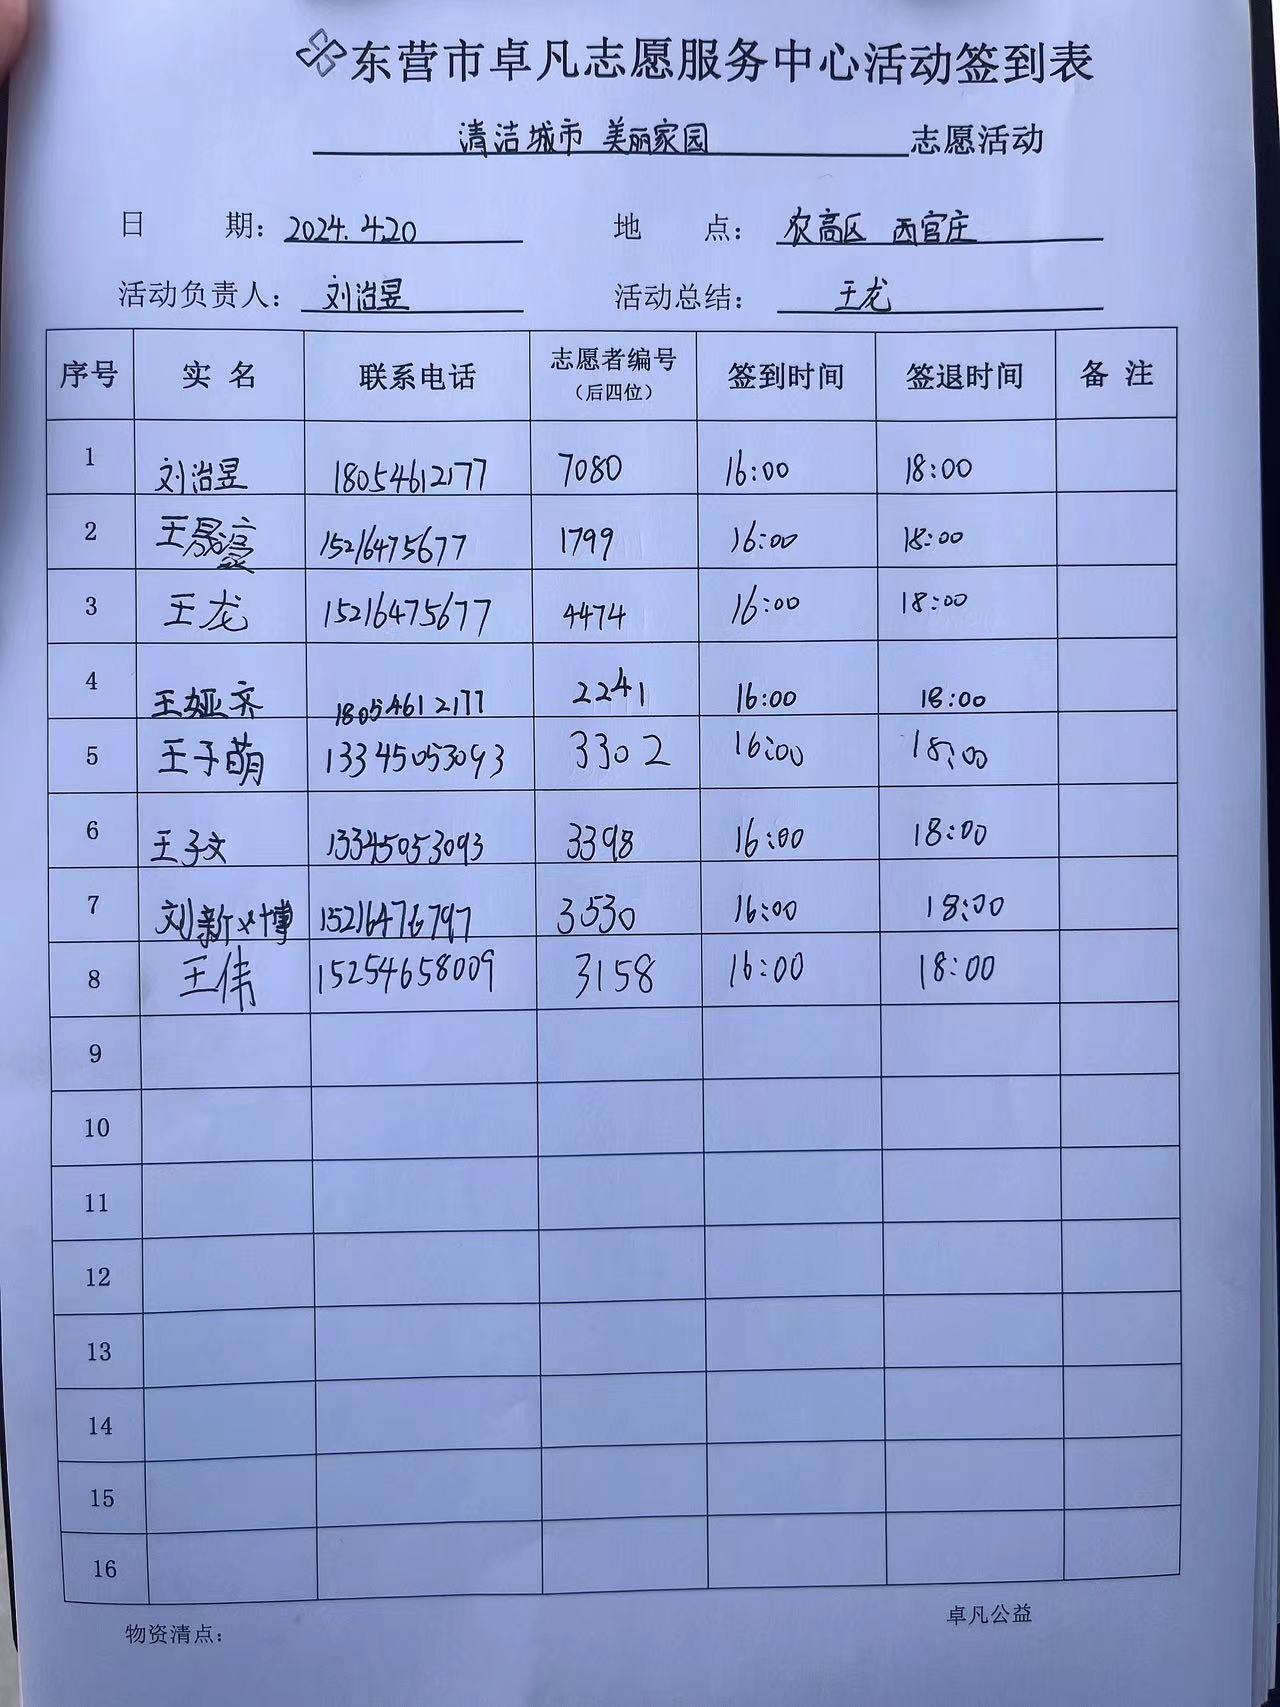 东营市卓凡志愿服务中心活动签到表
清洁城市 美丽家园 志愿活动
日 期: 2024.4.20 地 点: 农高区 西官庄
活动负责人: 刘治昱 活动总结: 王龙
序号 实 名 联系电话 志愿者编号（后四位） 签到时间 签退时间 备 注
1 刘治昱 18054612177 7080 16:00 18:00
2 王晟濠 15216475677 1799 16:00 18:00
3 王龙 15216475677 4474 16:00 18:00
4 王娅齐 18054612177 2241 16:00 18:00
5 王子萌 13345053093 3302 16:00 18:00
6 王子文 13345053093 3398 16:00 18:00
7 刘新博 15216476797 3530 16:00 18:00
8 王伟 15254658009 3158 16:00 18:00
9
10
11
12
13
14
15
16
物资清点: 卓凡公益